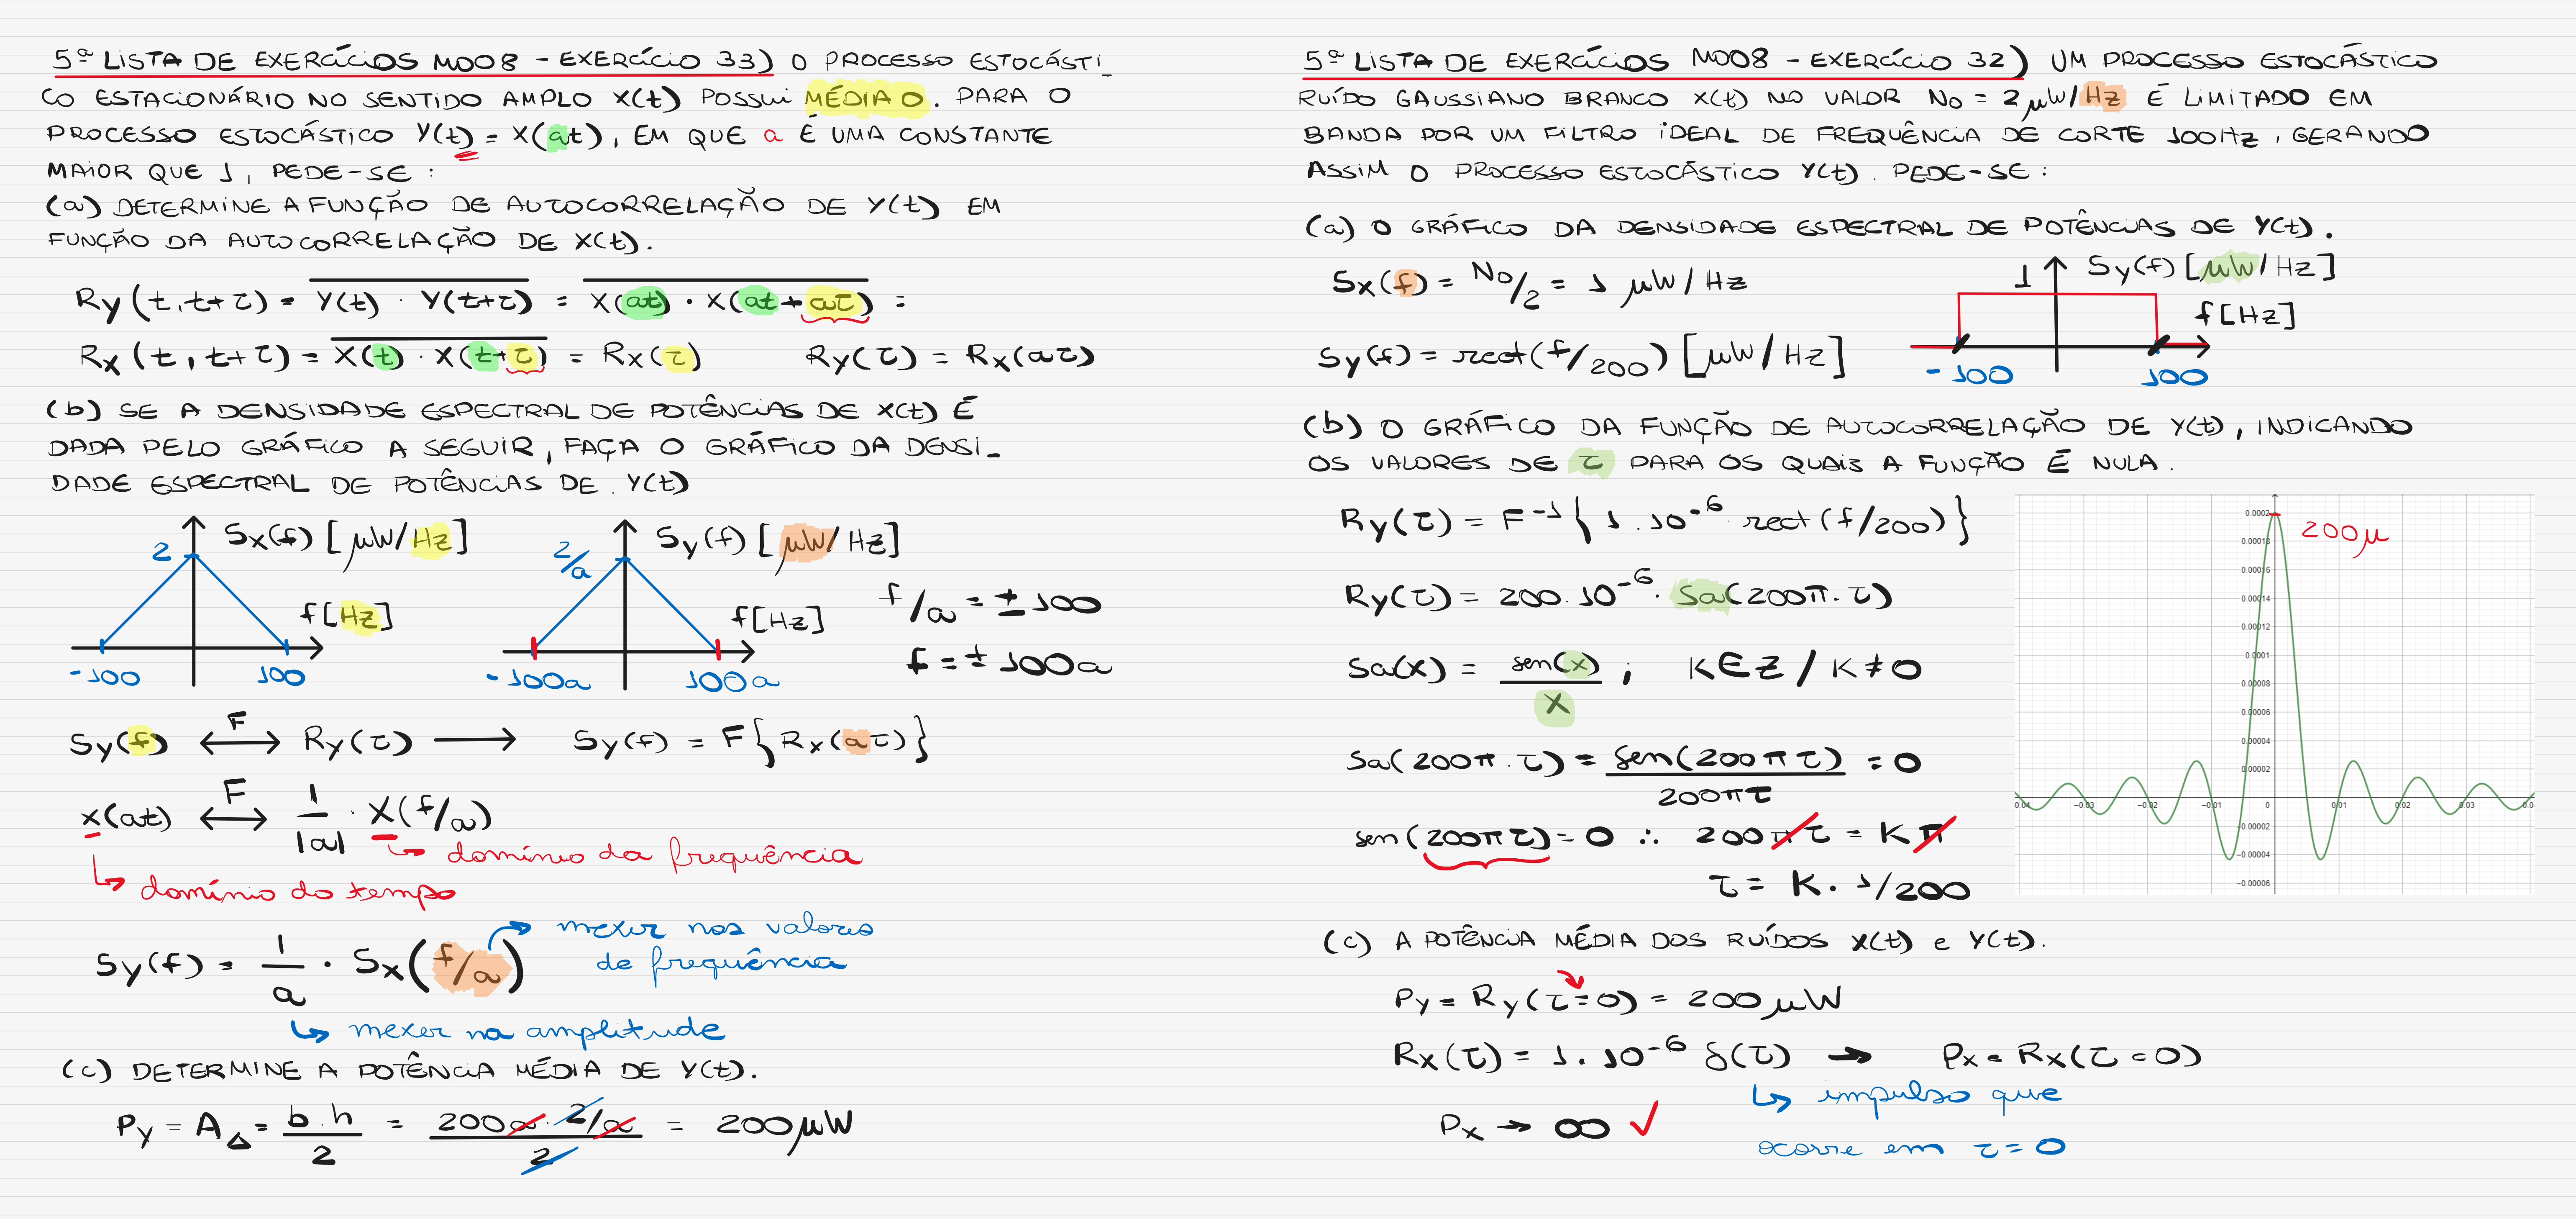 5ª LISTA DE EXERCÍCIOS M008 - EXERCÍCIO 33) O PROCESSO ESTOCÁSTI-
CO ESTACIONÁRIO NO SENTIDO AMPLO X(t) POSSUI MÉDIA 0. PARA O
PROCESSO ESTOCÁSTICO Y(t) = X(at), EM QUE a É UMA CONSTANTE
MAIOR QUE 1, PEDE-SE :
(a) DETERMINE A FUNÇÃO DE AUTOCORRELAÇÃO DE Y(t) EM
FUNÇÃO DA AUTOCORRELAÇÃO DE X(t).
Ry(t,t+τ) = Y(t) · Y(t+τ) = X(at) · X(at+aτ) =
Rx(t,t+τ) = X(t) · X(t+τ) = Rx(τ) Ry(τ) = Rx(aτ)
(b) SE A DENSIDADE ESPECTRAL DE POTÊNCIAS DE X(t) É
DADA PELO GRÁFICO A SEGUIR, FAÇA O GRÁFICO DA DENSI-
DADE ESPECTRAL DE POTÊNCIAS DE Y(t)
2 Sx(f) [μW/Hz] 2/a Sy(f) [μW/Hz]
f[Hz] f[Hz] f/a = ± 100
-100 100 -100a 100a f = ± 100a
Sy(f) ⟷ F Ry(τ) ⟶ Sy(f) = F{Rx(aτ)}
x(at) ⟷ F 1/|a| · X(f/a)
↳ domínio da frequência
↳ domínio do tempo
Sy(f) = 1/a · Sx(f/a) → mexer nos valores
de frequência
↳ mexer na amplitude
(c) DETERMINE A POTÊNCIA MÉDIA DE Y(t).
Py = A△ = b.h/2 = 200a · 2/a / 2 = 200μW
5ª LISTA DE EXERCÍCIOS M008 - EXERCÍCIO 32) UM PROCESSO ESTOCÁSTICO
RUÍDO GAUSSIANO BRANCO X(t) NO VALOR N0 = 2μW/Hz É LIMITADO EM
BANDA POR UM FILTRO IDEAL DE FREQUÊNCIA DE CORTE 100Hz, GERANDO
ASSIM O PROCESSO ESTOCÁSTICO Y(t). PEDE-SE :
(a) O GRÁFICO DA DENSIDADE ESPECTRAL DE POTÊNCIAS DE Y(t).
Sx(f) = N0/2 = 1 μW/Hz
Sy(f) = rect(f/200) [μW/Hz]
1 Sy(f) [μW/Hz]
f[Hz]
-100 100
(b) O GRÁFICO DA FUNÇÃO DE AUTOCORRELAÇÃO DE Y(t), INDICANDO
OS VALORES DE τ PARA OS QUAIS A FUNÇÃO É NULA.
Ry(τ) = F⁻¹{1.10⁻⁶ · rect(f/200)}
Ry(τ) = 200.10⁻⁶ · Sa(200π.τ)
Sa(x) = sen(x)/x ; K∈Z / K≠0
Sa(200π.τ) = sen(200πτ)/200πτ = 0
sen(200πτ) = 0 ∴ 200πτ = Kπ
τ = K · 1/200
0.0002 200μ
0.00018
0.00016
0.00014
0.00012
0.0001
0.00008
0.00006
0.00004
0.00002
0.04 -0.03 -0.02 -0.01 0 0.01 0.02 0.03 0.0
-0.00002
-0.00004
-0.00006
(c) A POTÊNCIA MÉDIA DOS RUÍDOS X(t) e Y(t).
Py = Ry(τ=0) = 200μW
Rx(τ) = 1.10⁻⁶ δ(τ) → Px = Rx(τ=0)
↳ impulso que
ocorre em τ=0
Px → ∞ ✓